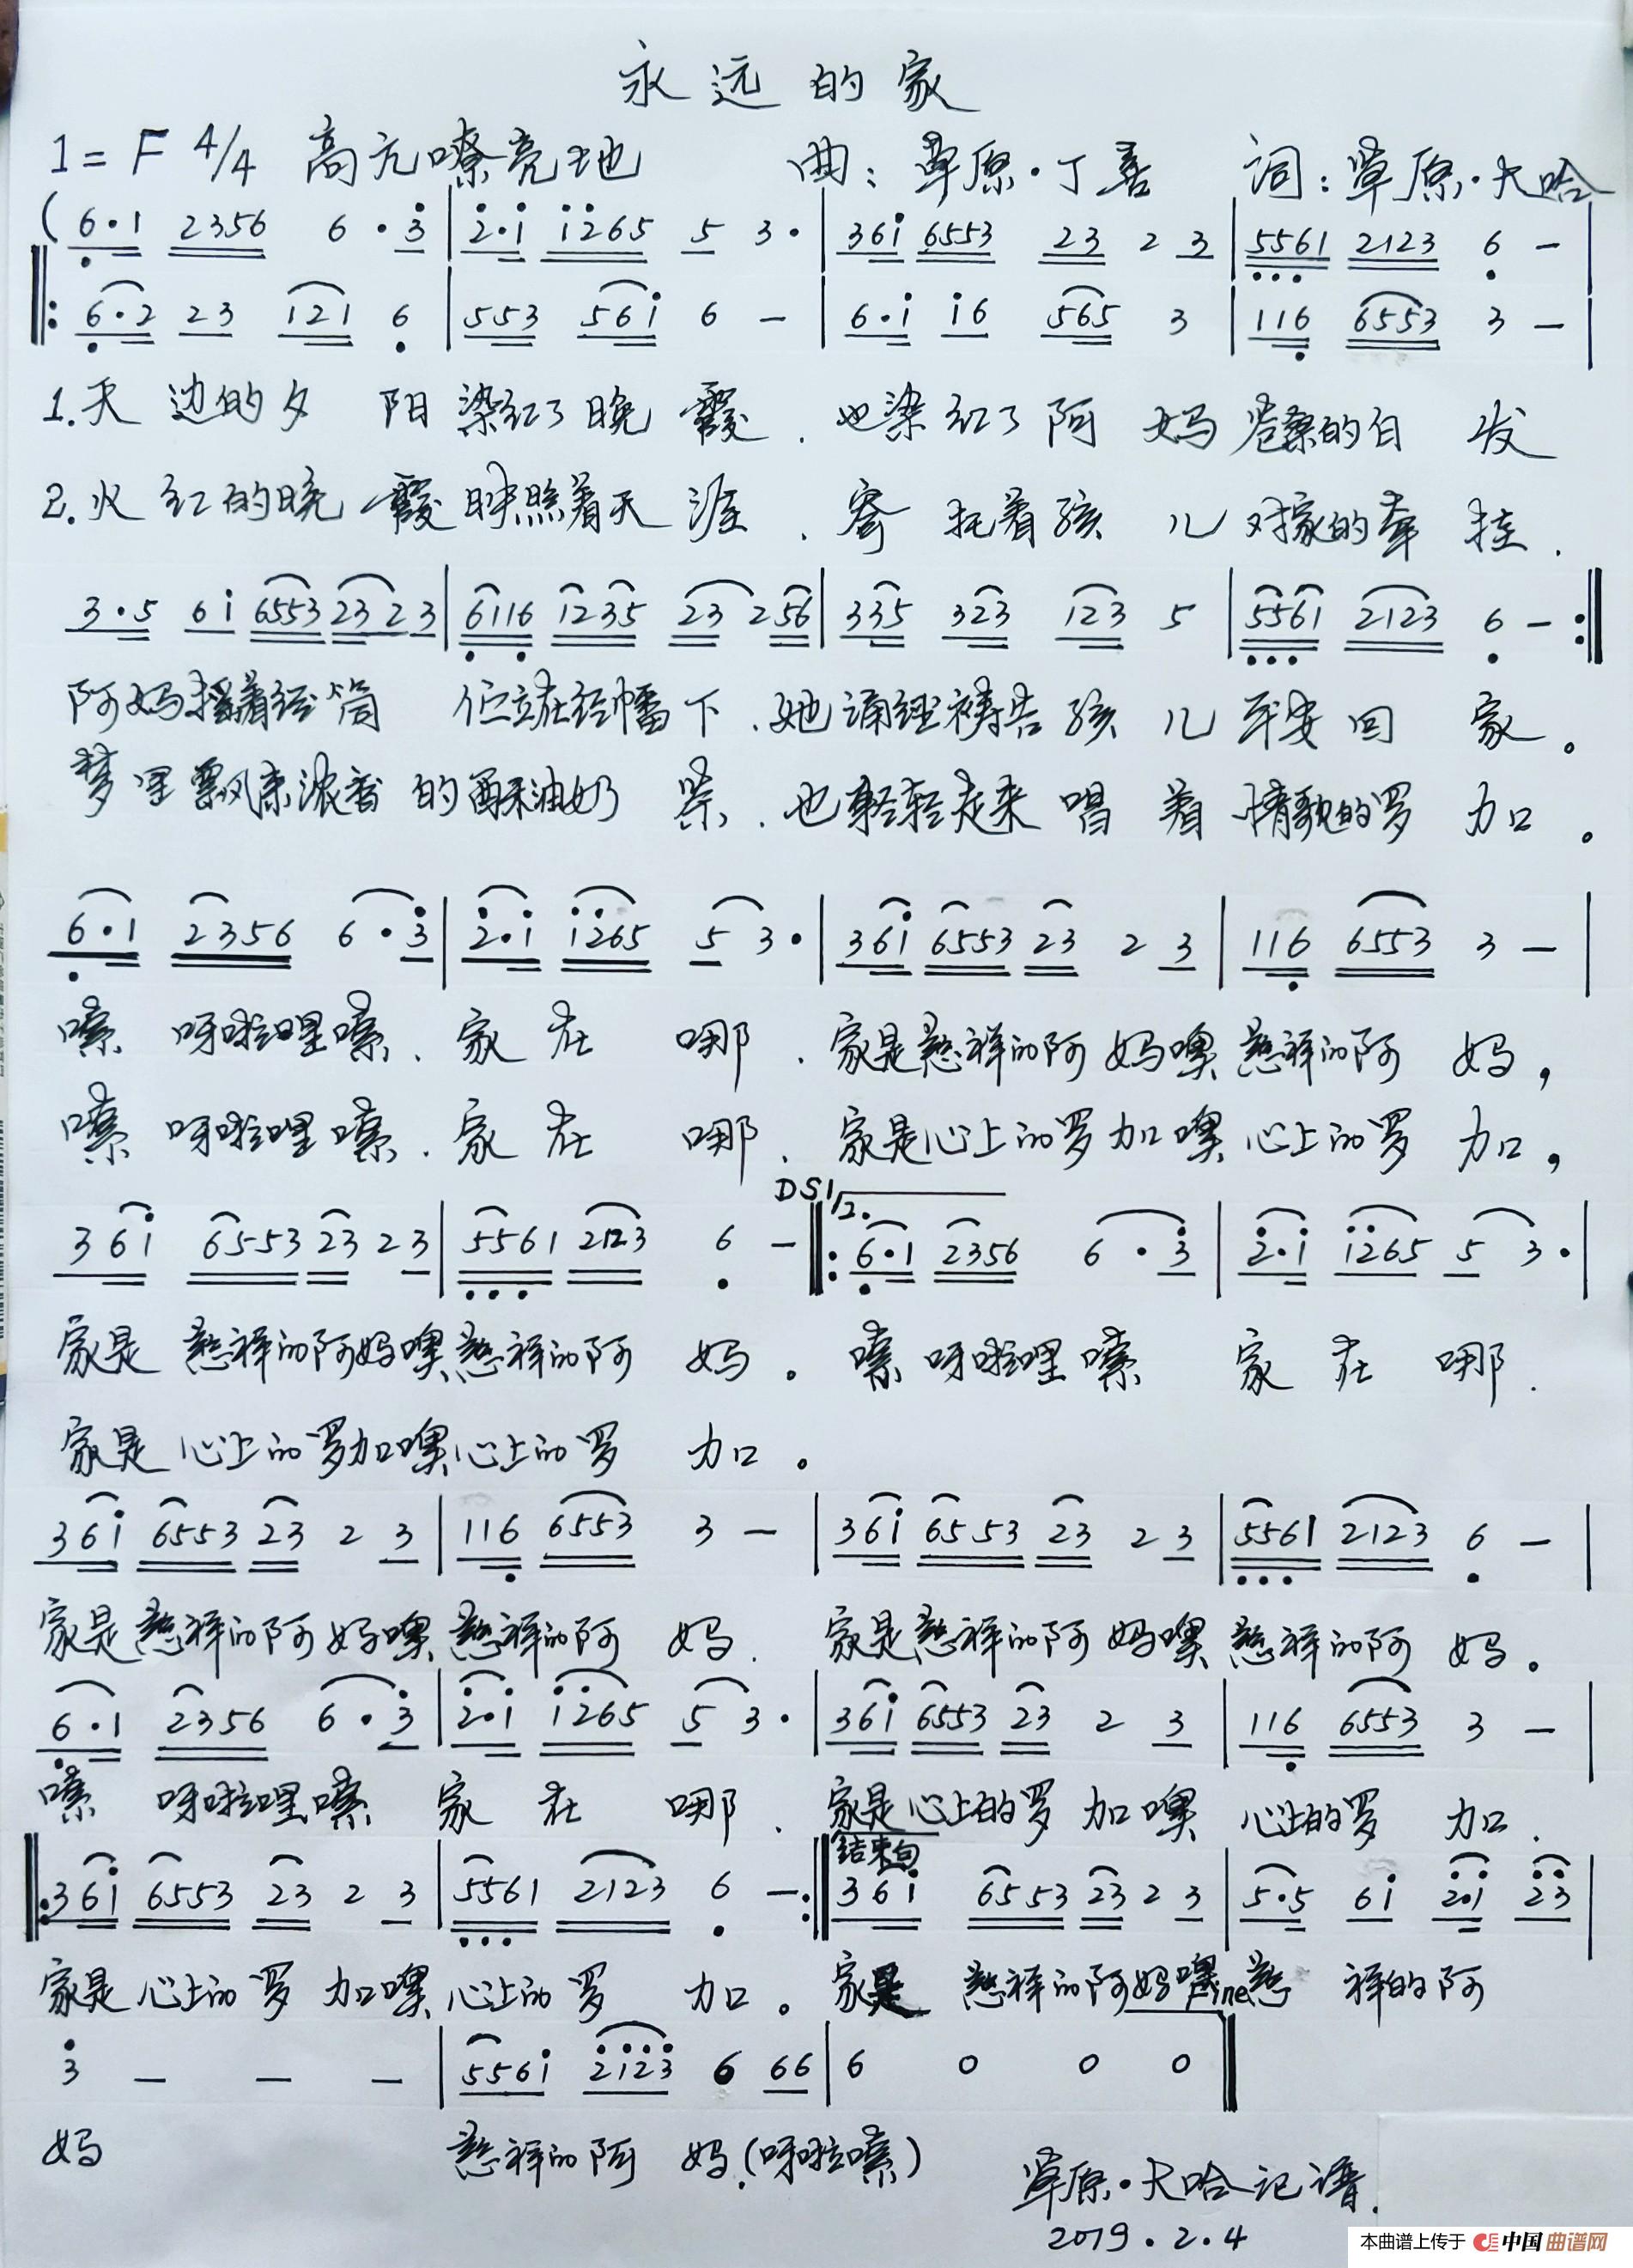 永远的家
1=F 4/4 高亢嘹亮地 曲:草原·丁喜 词:草原·大哈
(6·1 2356 6·3 | 2·i i265 5 3· | 36i 6553 23 2 3 | 5561 2123 6 – |
‖: 6·2 23 121 6 | 553 56i 6 – | 6·i i6 565 3 | 116 6553 3 – |
1.天边的夕阳染红了晚霞.也染红了阿妈苍桑的白发
2.火红的晚霞映照着天涯.寄托着孩儿对家的牵挂.
3·5 6i 6553 23 2 3 | 6116 1235 23 2 56 | 335 323 123 5 | 5561 2123 6 – :‖
阿妈摇着经筒 伫立在经幡下.她诵经祷告孩儿平安回家。
梦里飘来浓香的酥油奶茶.也轻轻走来唱着情歌的罗加。
6·1 2356 6·3 | 2·i i265 5 3· | 36i 6553 23 2 3 | 116 6553 3 – |
嗦呀啦哩嗦.家在哪.家是慈祥的阿妈噢慈祥的阿妈,
嗦呀啦哩嗦.家在哪.家是心上的罗加噢心上的罗加,
DS1/2.
36i 6553 23 2 3 | 5561 2123 6 – ‖: 6·1 2356 6·3 | 2·i i265 5 3· |
家是慈祥的阿妈噢慈祥的阿妈。嗦呀啦哩嗦 家在哪.
家是心上的罗加噢心上的罗加。
36i 6553 23 2 3 | 116 6553 3 – | 36i 6553 23 2 3 | 5561 2123 6 – |
家是慈祥的阿妈噢慈祥的阿妈.家是慈祥的阿妈噢慈祥的阿妈。
6·1 2356 6·3 | 2·i i265 5 3· | 36i 6553 23 2 3 | 116 6553 3 – |
嗦呀啦哩嗦 家在哪.家是心上的罗加噢心上的罗加.
结束句
‖: 36i 6553 23 2 3 | 5561 2123 6 – :‖ 36i 6553 23 2 3 | 5·5 6i 2·i 23 |
家是心上的罗加噢心上的罗加。家是慈祥的阿妈噢慈祥的阿
Fine
3 – – – | 556i 2123 6 66 | 6 0 0 0 ‖
妈 慈祥的阿妈.(呀啦嗦)
草原·大哈记谱.
2019.2.4
本曲谱上传于 中国曲谱网